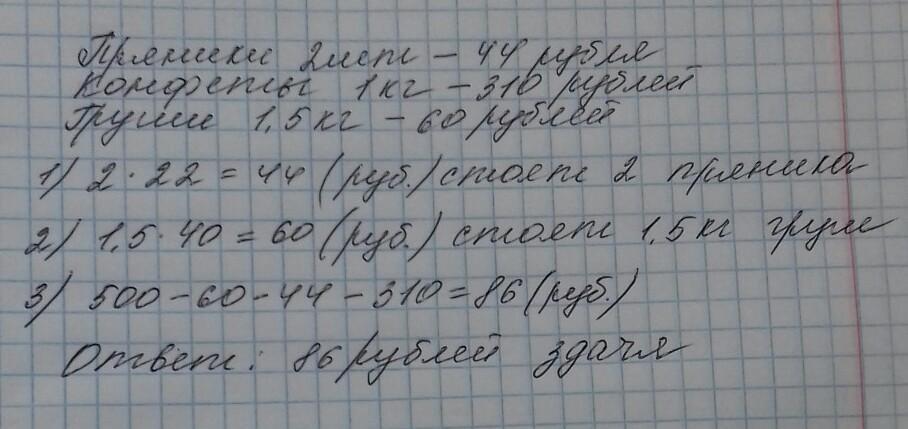 Пряники 2шт - 44 рубля
Конфеты 1кг - 310 рублей
Груши 1,5кг - 60 рублей
1) 2 · 22 = 44 (руб.) стоят 2 пряника
2) 1,5 · 40 = 60 (руб.) стоят 1,5кг груш
3) 500 - 60 - 44 - 310 = 86 (руб.)
Ответ: 86 рублей здача